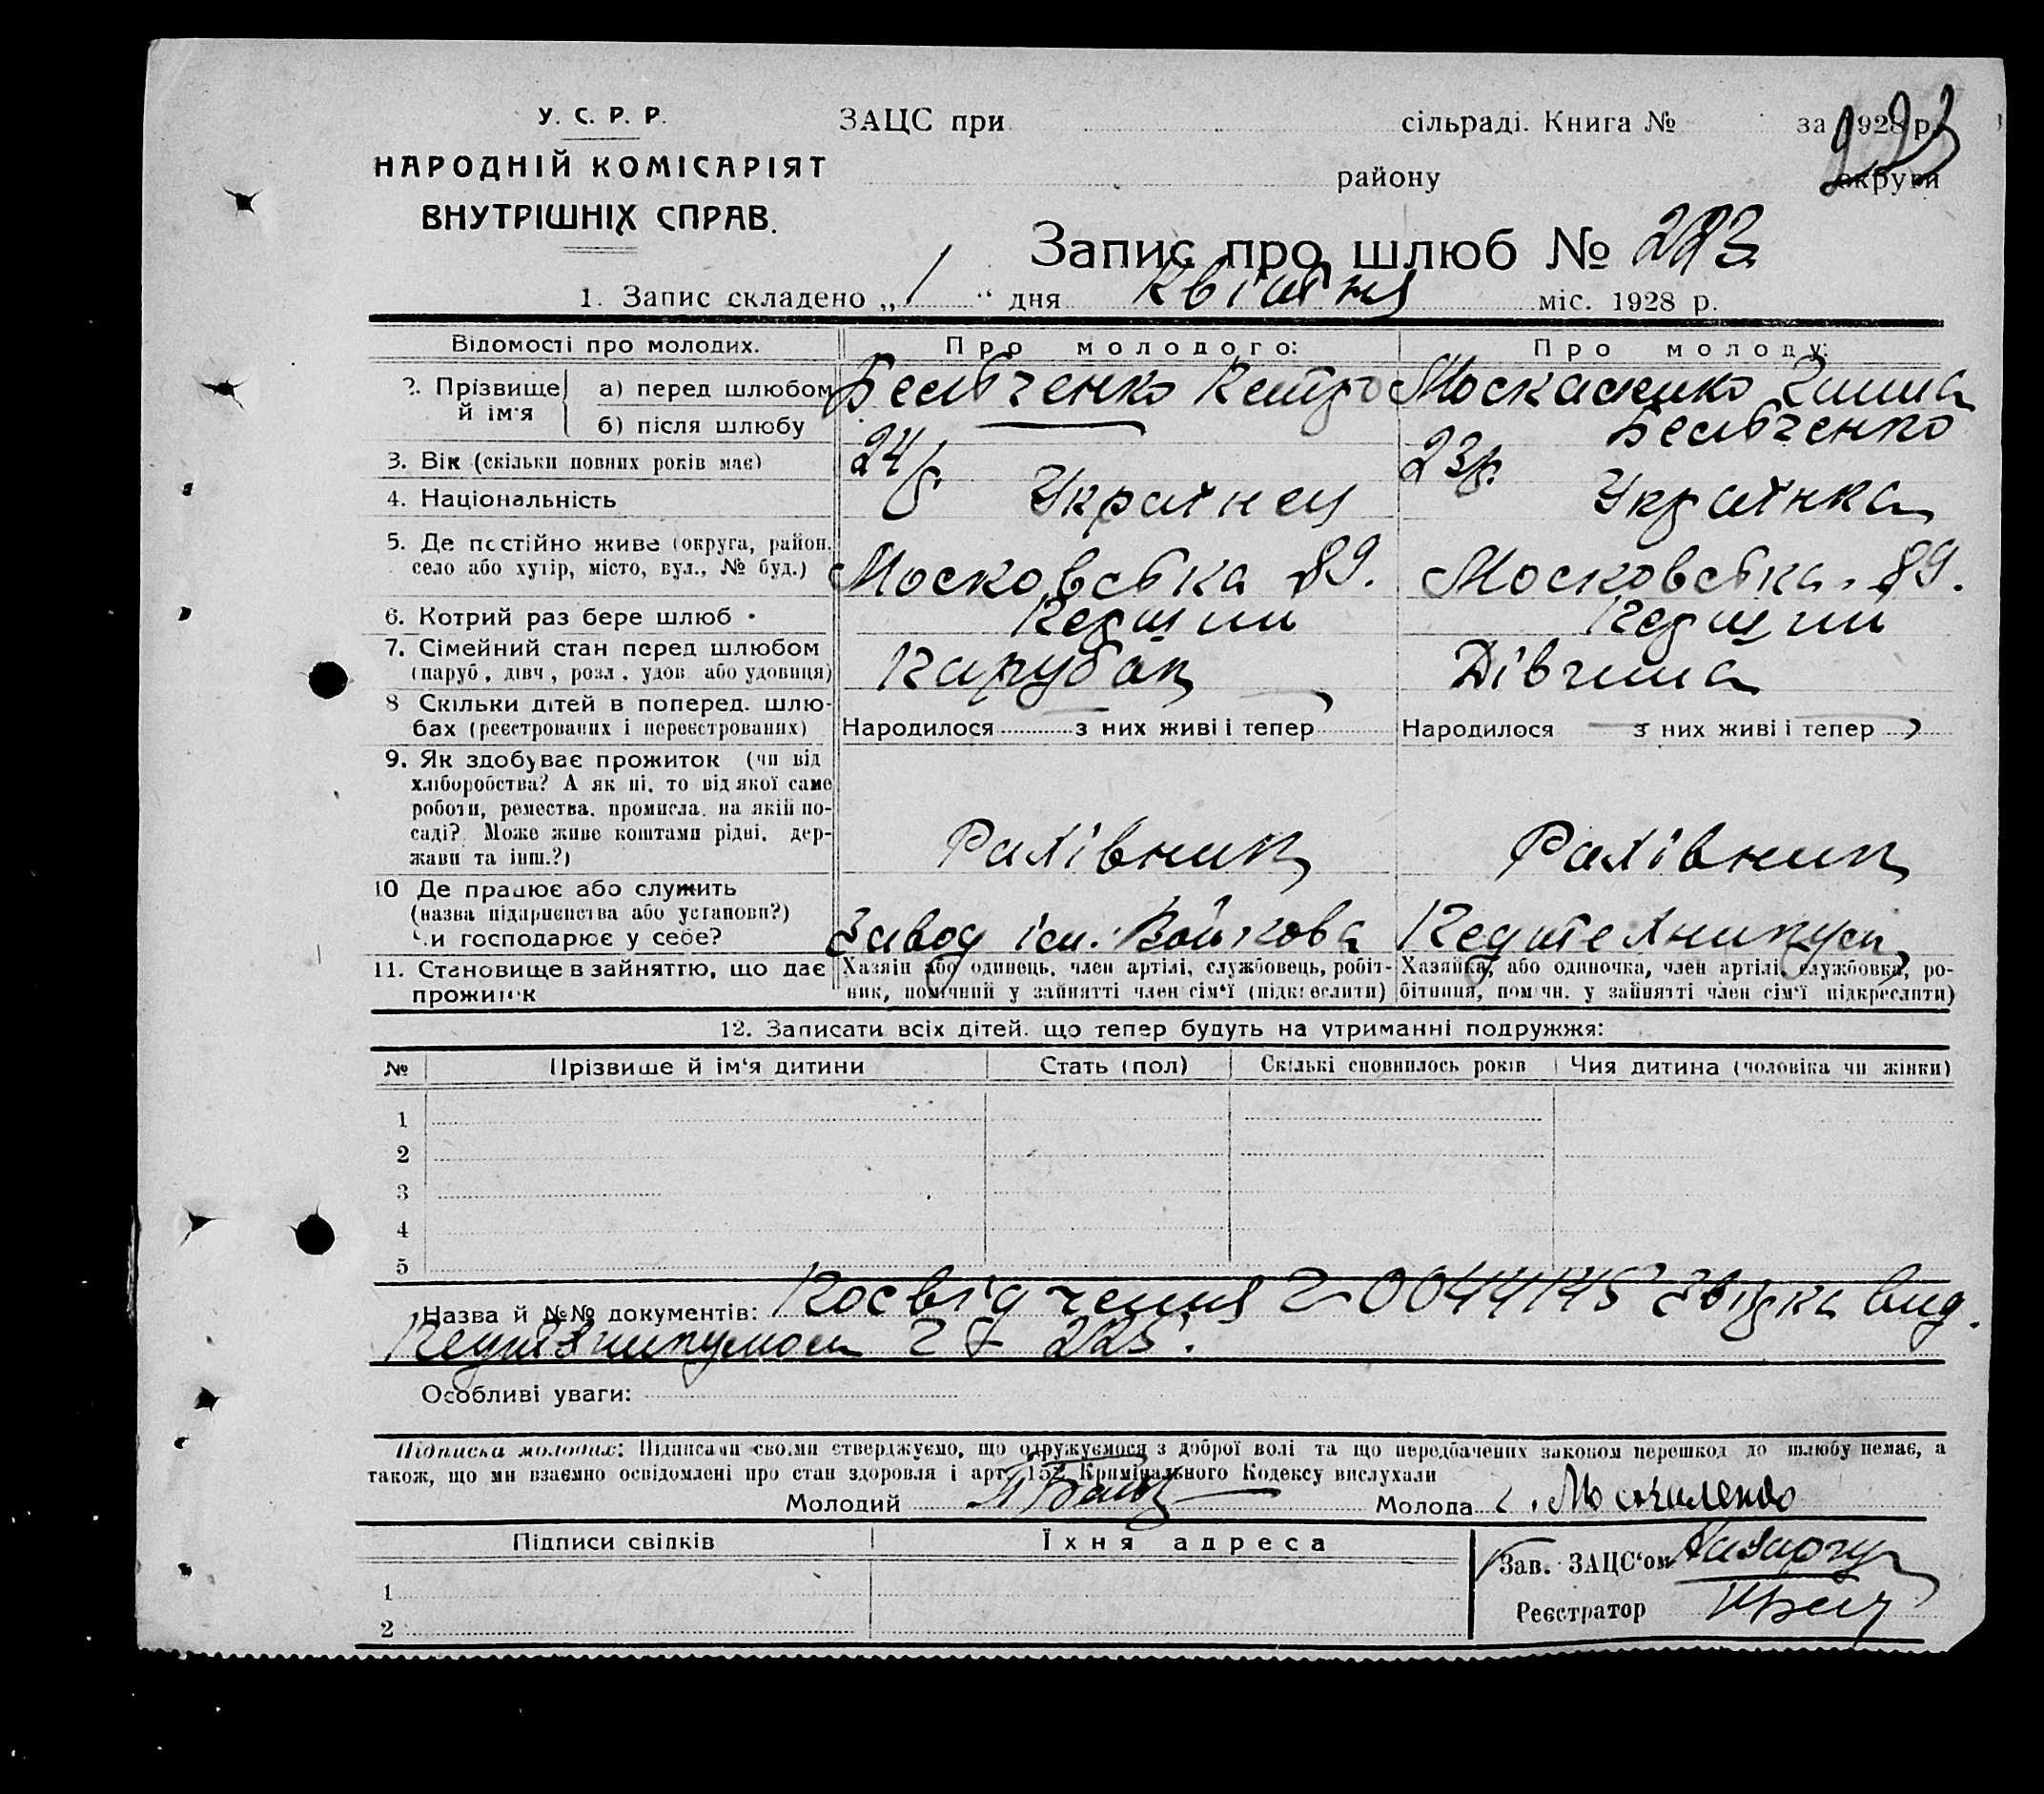 У. С. Р. Р.
НАРОДНІЙ КОМІСАРІЯТ
ВНУТРІШНІХ СПРАВ.
ЗАЦС при сільраді. Книга № за 1928 р.
району округи
223
Запис про шлюб № 223
1. Запис складено „1“ дня Квітня міс. 1928 р.
Відомості про молодих. Про молодого: Про молоду:
2. Прізвище й ім'я
а) перед шлюбом Петро Москаленко
б) після шлюбу
3. Вік (скільки повних років має) 24 р. 23 р.
4. Національність Українец Українка
5. Де постійно живе (округа, район, село або хутір, місто, вул., № буд.) Московська 89. Московська, 89.
6. Котрий раз бере шлюб Перший Перший
7. Сімейний стан перед шлюбом (паруб, дівч, розл, удов або удовиця) Парубок Дівчина
8 Скільки дітей в поперед. шлюбах (реєстрованих і нереєстрованих) Народилося з них живі і тепер Народилося з них живі і тепер
9. Як здобуває прожиток (чи від хліборобства? А як ні, то від якої саме роботи, ремества, промисла, на якій посаді? Може живе коштами рідні, держави та інш.?) Рахівник Рахівник
10 Де працює або служить (назва підприємства або установи?) Чи господарює у себе? Завод ім. Войкова
11. Становище в зайняттю, що дає прожиток
Хазяїн або одинець, член артілі, службовець, робітник, помічний у зайнятті член сім'ї (підкреслити)
Хазяйка, або одиночка, член артілі, службовка, робітниця, помічн. у зайнятті член сім'ї підкреслити)
12. Записати всіх дітей, що тепер будуть на утриманні подружжя:
№ Прізвище й ім'я дитини Стать (пол) Скількі сповнилось років Чия дитина (чоловіка чи жінки)
1
2
3
4
5
Назва й №№ документів: Посвідчення 0044145 вид.
225.
Особливі уваги:
Підписка молодих: Підписами своїми стверджуємо, що одружуємося з доброї волі та що передбачених законом перешкод до шлюбу немає, а
також, що ми взаємно освідомлені про стан здоровля і арт. 152 Кримінального Кодексу вислухали
Молодий Молода Москаленко
Підписи свідків Їхня адреса
Зав. ЗАЦС'ом
1
Реєстратор
2